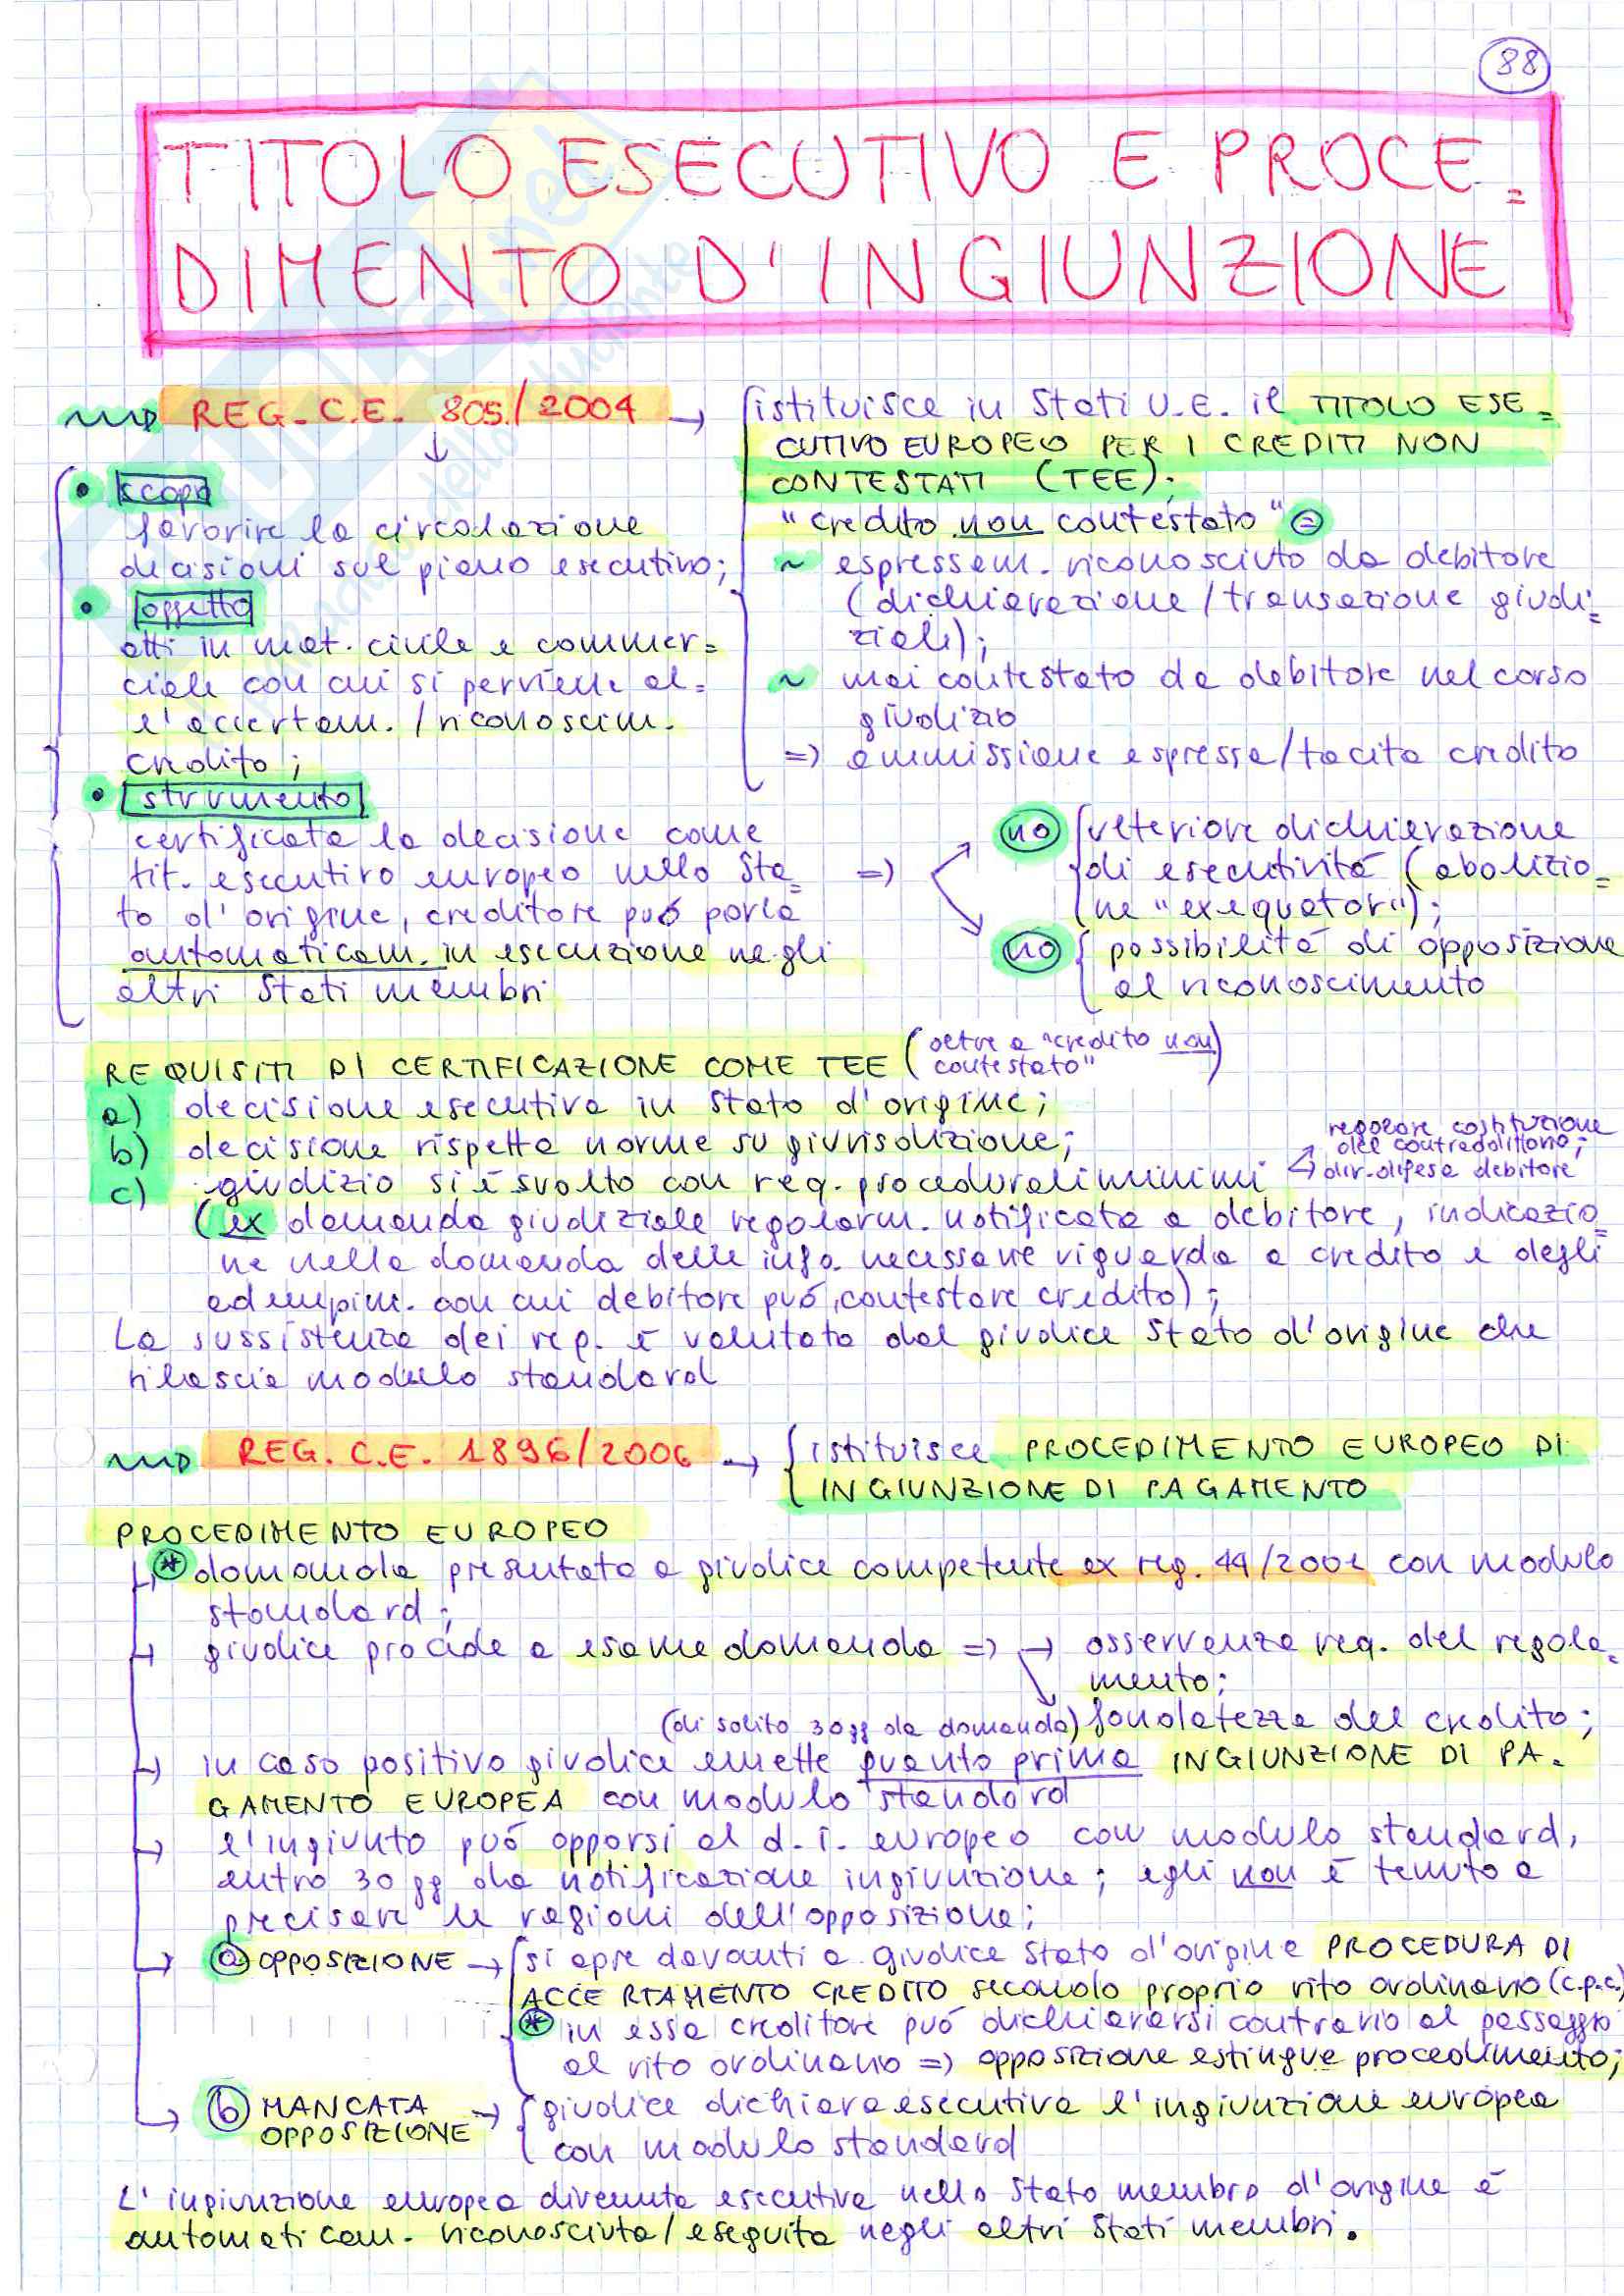 88
TITOLO ESECUTIVO E PROCE=
DIMENTO D'INGIUNZIONE
REG. C.E. 805/2004 →
↓
• scopo
favorire la circolazione
decisioni sul piano esecutivo;
• oggetto
atti in mat. civile e commer=
ciale con cui si perviene al=
l'accertam. / riconoscim.
credito;
• strumento
certificata la decisione come
tit. esecutivo europeo nello Sta=
to d'origine, creditore può porla
automaticam. in esecuzione negli
altri Stati membri
istituisce in Stati U.E. il TITOLO ESE=
CUTIVO EUROPEO PER I CREDITI NON
CONTESTATI (TEE);
"credito non contestato" =
~ espressam. riconosciuto da debitore
(dichiarazione / transazione giudi=
ziale);
~ mai contestato da debitore nel corso
giudizio
=> ammissione espressa/tacita credito
=>
no ulteriore dichiarazione
di esecutività (abolizio=
ne "exequatur");
no possibilità di opposizione
al riconoscimento
REQUISITI DI CERTIFICAZIONE COME TEE (oltre a "credito non
contestato")
a) decisione esecutiva in Stato d'origine;
b) decisione rispetta norme su giurisdizione;
c) giudizio si è svolto con req. procedurali minimi
regolare costituzione
del contraddittorio;
dir. difesa debitore
(ex domanda giudiziale regolarm. notificata a debitore, indicazio=
ne nella domanda delle info necessarie riguardo a credito e degli
adempim. con cui debitore può contestare credito);
La sussistenza dei req. è valutata dal giudice Stato d'origine che
rilascia modulo standard
REG. C.E. 1896/2006 → istituisce PROCEDIMENTO EUROPEO DI
INGIUNZIONE DI PAGAMENTO
PROCEDIMENTO EUROPEO
* domanda presentata a giudice competente ex reg. 44/2001 con modulo
standard;
giudice procede a esame domanda => → osservanza req. del regola=
mento;
(di solito 30 gg da domanda) fondatezza del credito;
in caso positivo giudice emette quanto prima INGIUNZIONE DI PA=
GAMENTO EUROPEA con modulo standard
l'ingiunto può opporsi al d.i. europeo con modulo standard,
entro 30 gg da notificazione ingiunzione; egli non è tenuto a
precisare le ragioni dell'opposizione;
a OPPOSIZIONE → si apre davanti a giudice Stato d'origine PROCEDURA DI
ACCERTAMENTO CREDITO secondo proprio rito ordinario (c.p.c.)
* in essa creditore può dichiararsi contrario al passaggio
al rito ordinario => opposizione estingue procedimento;
b MANCATA → giudice dichiara esecutiva l'ingiunzione europea
OPPOSIZIONE con modulo standard
L'ingiunzione europea divenuta esecutiva nello Stato membro d'origine è
automaticam. riconosciuta / eseguita negli altri Stati membri.